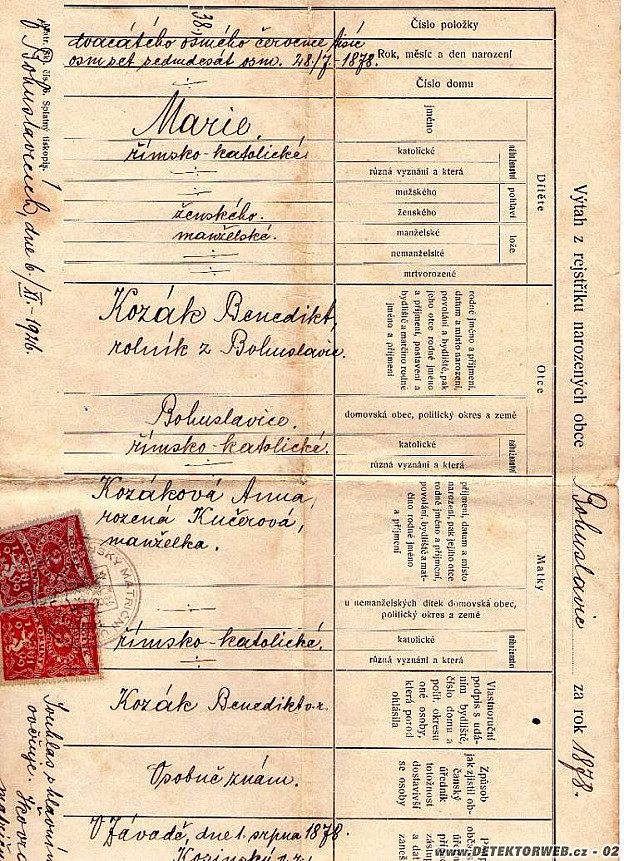 Výtah z rejstříku narozených obce Bohuslavic za rok 1878.
Číslo položky
38,
Rok, měsíc a den narození
dvacátého osmého července tisíc
osm set sedmdesát osm. 28./7.-1878.
Číslo domu
Dítěte
jméno
Marie.
náboženství
katolické
římsko-katolické
různá vyznání a která
pohlaví
mužského
ženského
ženského.
lože
manželské
manželské.
nemanželské
mrtvorozené
Otce
rodné jméno a příjmení,
datum a místo narození,
povolání a bydliště, pak
jeho otce rodné jméno
a příjmení, postavení a
bydliště a matčino rodné
jméno a příjmení
Kozák Benedikt,
rolník z Bohuslavic.
domovská obec, politický okres a země
Bohuslavice.
náboženství
katolické
římsko-katolické.
různá vyznání a která
Matky
příjmení, datum a místo
narození, pak jejího otce
rodné jméno a příjmení,
povolání, bydliště a mat-
čino rodné jméno
a příjmení
Kozáková Anna,
rozená Kučerová,
manželka.
u nemanželských dítek domovská obec,
politický okres a země
náboženství
katolické
římsko-katolické.
různá vyznání a která
Vlastnoruční
podpis s udá-
ním bydliště,
číslo domu a
polit. okresu
oné osoby,
která porod
ohlásila
Kozák Benedikt v.r.
Způsob
jak zjistil ob-
čanský
úředník
totožnost
dostavivší
se osoby
Osobně znám.
V Závadě, dne 1. srpna 1878.
V Bohuslavicích, dne 6./XI.-1926.
Souhlas s hlavním
ověřuje.
WWW.DETEKTORWEB.cz - 02